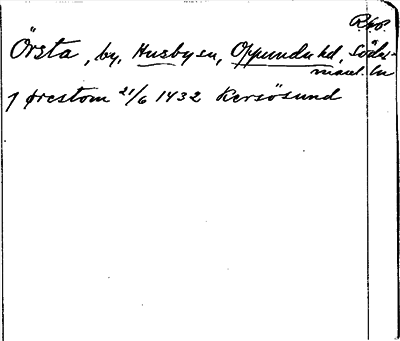 Rhop.
Örsta, by, Husby sn, Oppunda hd, Söder-
manl. ln
j ørestom 21/6 1432 Kersösund